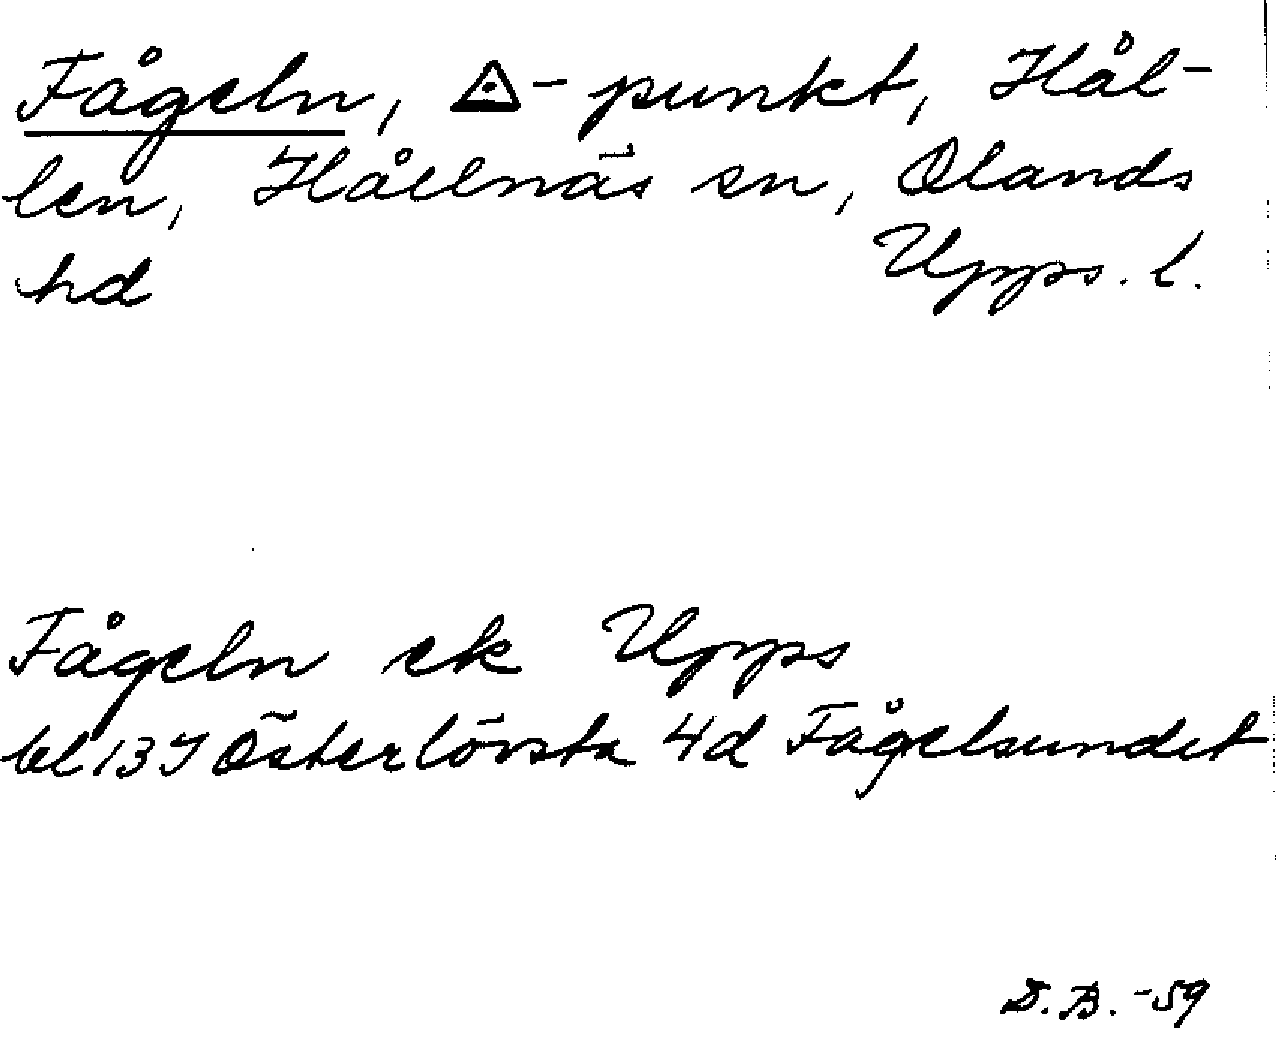 Fågeln, ◬-punkt, Hål-
len, Hållnäs sn, Olands
hd Upps. l.
Fågeln ek Upps
bl 13 I Österlövsta 4d Fågelsundet
D.B. -59